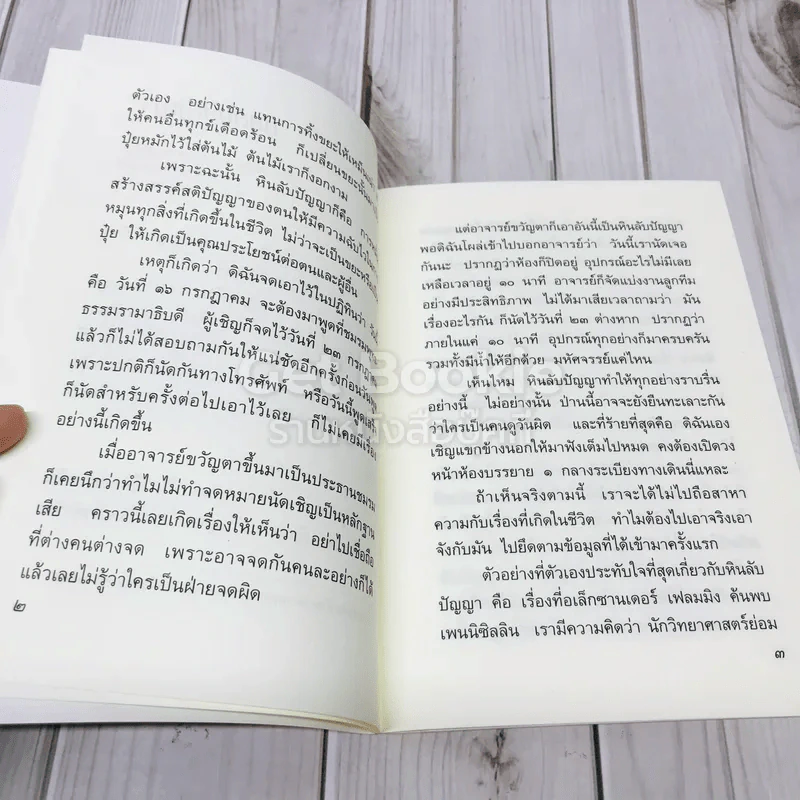 ตัวเอง อย่างเช่น แทนการทิ้งขยะให้เหม็นเน่า
ให้คนอื่นทุกข์เดือดร้อน ก็เปลี่ยนขยะนั้น
ปุ๋ยหมักไว้ใส่ต้นไม้ ต้นไม้เราก็งอกงาม
เพราะฉะนั้น หินลับปัญญาก็คือ
สร้างสรรค์สติปัญญาของตนให้มีความฉับไว
หมุนทุกสิ่งที่เกิดขึ้นในชีวิต ไม่ว่าจะเป็นขยะหรือ
ปุ๋ย ให้เกิดเป็นคุณประโยชน์ต่อตนและผู้อื่น
เหตุก็เกิดว่า ดิฉันจดเอาไว้ในปฏิทินว่า
คือ วันที่ ๑๖ กรกฎาคม จะต้องมาพูดที่ชมรม
ธรรมรามาธิบดี ผู้เชิญก็จดไว้วันที่ ๒๓ กรกฎาคม
แล้วก็ไม่ได้สอบถามกันให้แน่ชัดอีกครั้งก่อนวัน
เพราะปกติก็นัดกันทางโทรศัพท์ หรือวันนี้พูด
ก็นัดสำหรับครั้งต่อไปเอาไว้เลย ก็ไม่เคยมีเรื่อง
อย่างนี้เกิดขึ้น
เมื่ออาจารย์ขวัญตาขึ้นมาเป็นประธานชมรม
ก็เคยนึกว่าทำไมไม่ทำจดหมายนัดเชิญเป็นหลักฐาน
เสีย คราวนี้เลยเกิดเรื่องให้เห็นว่า อย่าไปเชื่อถือ
ที่ต่างคนต่างจด เพราะอาจจดกันคนละอย่างก็ได้
แล้วเลยไม่รู้ว่าใครเป็นฝ่ายจดผิด
๒
แต่อาจารย์ขวัญตาก็เอาอันนี้เป็นหินลับปัญญา
พอดิฉันโผล่เข้าไปบอกอาจารย์ว่า วันนี้เรานัดเจอ
กันนะ ปรากฏว่าห้องก็ปิดอยู่ อุปกรณ์อะไรไม่มีเลย
เหลือเวลาอยู่ ๑๐ นาที อาจารย์ก็จัดแบ่งงานลูกทีม
อย่างมีประสิทธิภาพ ไม่ได้มาเสียเวลาถามว่า มัน
เรื่องอะไรกัน ก็นัดไว้วันที่ ๒๓ ต่างหาก ปรากฏว่า
ภายในแค่ ๑๐ นาที อุปกรณ์ทุกอย่างก็มาครบครัน
รวมทั้งมีน้ำให้อีกด้วย มหัศจรรย์แค่ไหน
เห็นไหม หินลับปัญญาทำให้ทุกอย่างราบรื่น
อย่างนี้ ไม่อย่างนั้น ป่านนี้อาจจะยังยืนทะเลาะกัน
ว่าใครเป็นคนดูวันผิด และที่ร้ายที่สุดคือ ดิฉันเอง
เชิญแขกช้างนอกให้มาฟังเต็มไปหมด คงต้องเปิดวง
หน้าห้องบรรยาย ๑ กลางระเบียงทางเดินนี่แหละ
ถ้าเห็นจริงตามนี้ เราจะได้ไม่ไปถือสาหา
ความกับเรื่องที่เกิดในชีวิต ทำไมต้องไปเอาจริงเอา
จังกับมัน ไปยึดตามข้อมูลที่ได้เข้ามาครั้งแรก
ตัวอย่างที่ตัวเองประทับใจที่สุดเกี่ยวกับหินลับ
ปัญญา คือ เรื่องที่อเล็กซานเดอร์ เฟลมมิง ค้นพบ
เพนนิซิลลิน เรามีความคิดว่า นักวิทยาศาสตร์ย่อม
๓